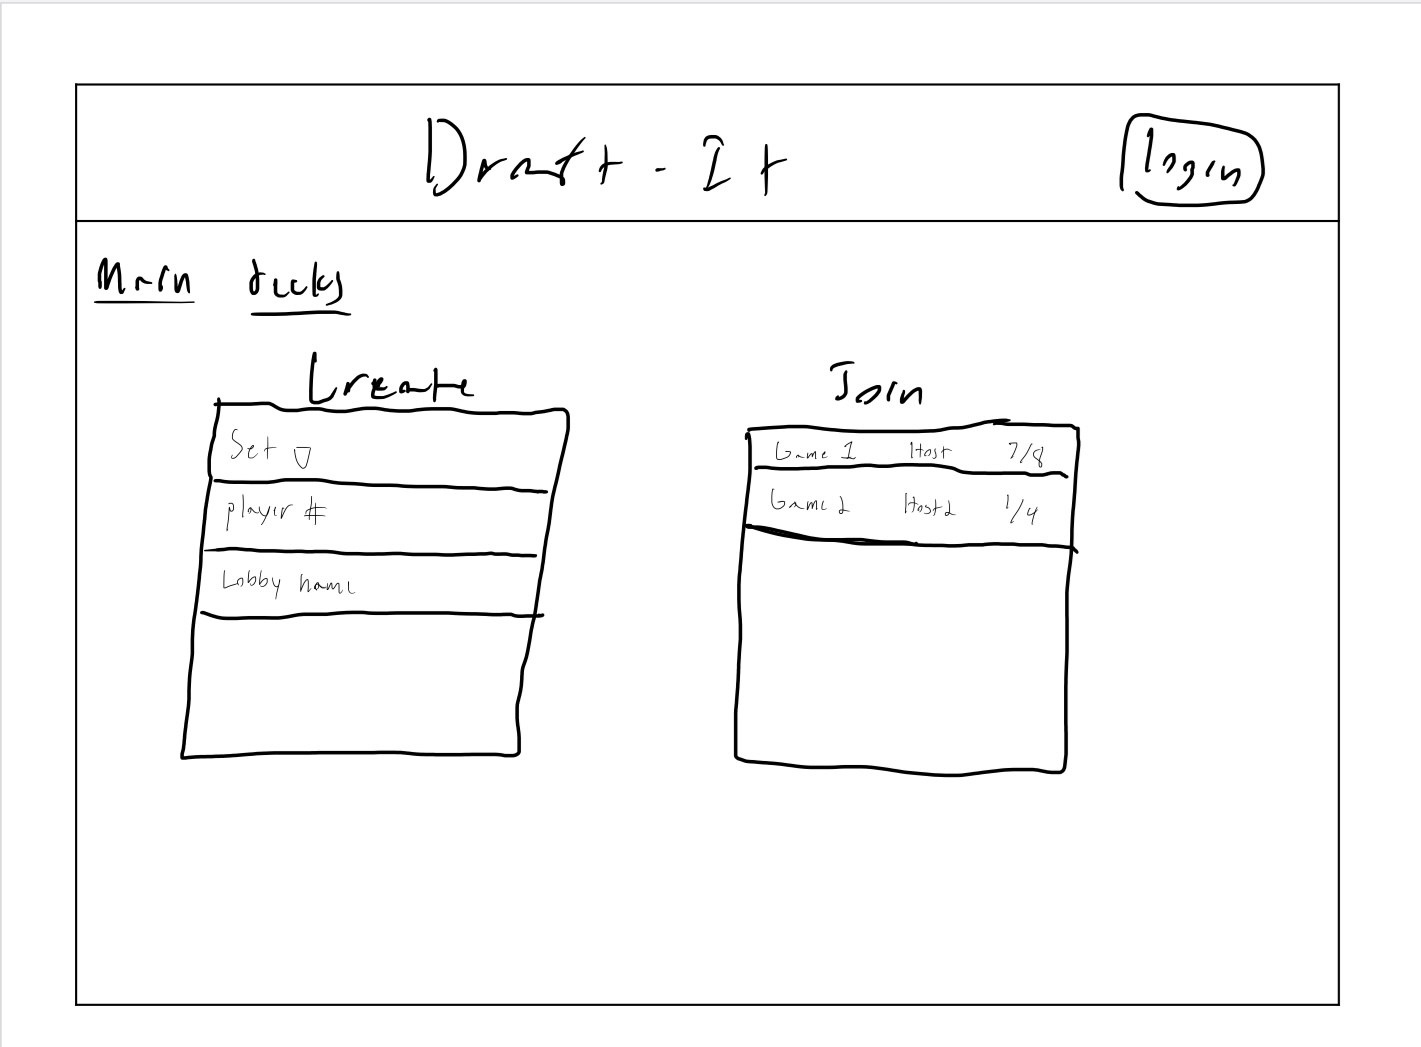 Draft-It
login
Main decks
Create
Set
player #
Lobby name
Join
Game 1 Host 7/8
Game 2 Host2 1/4